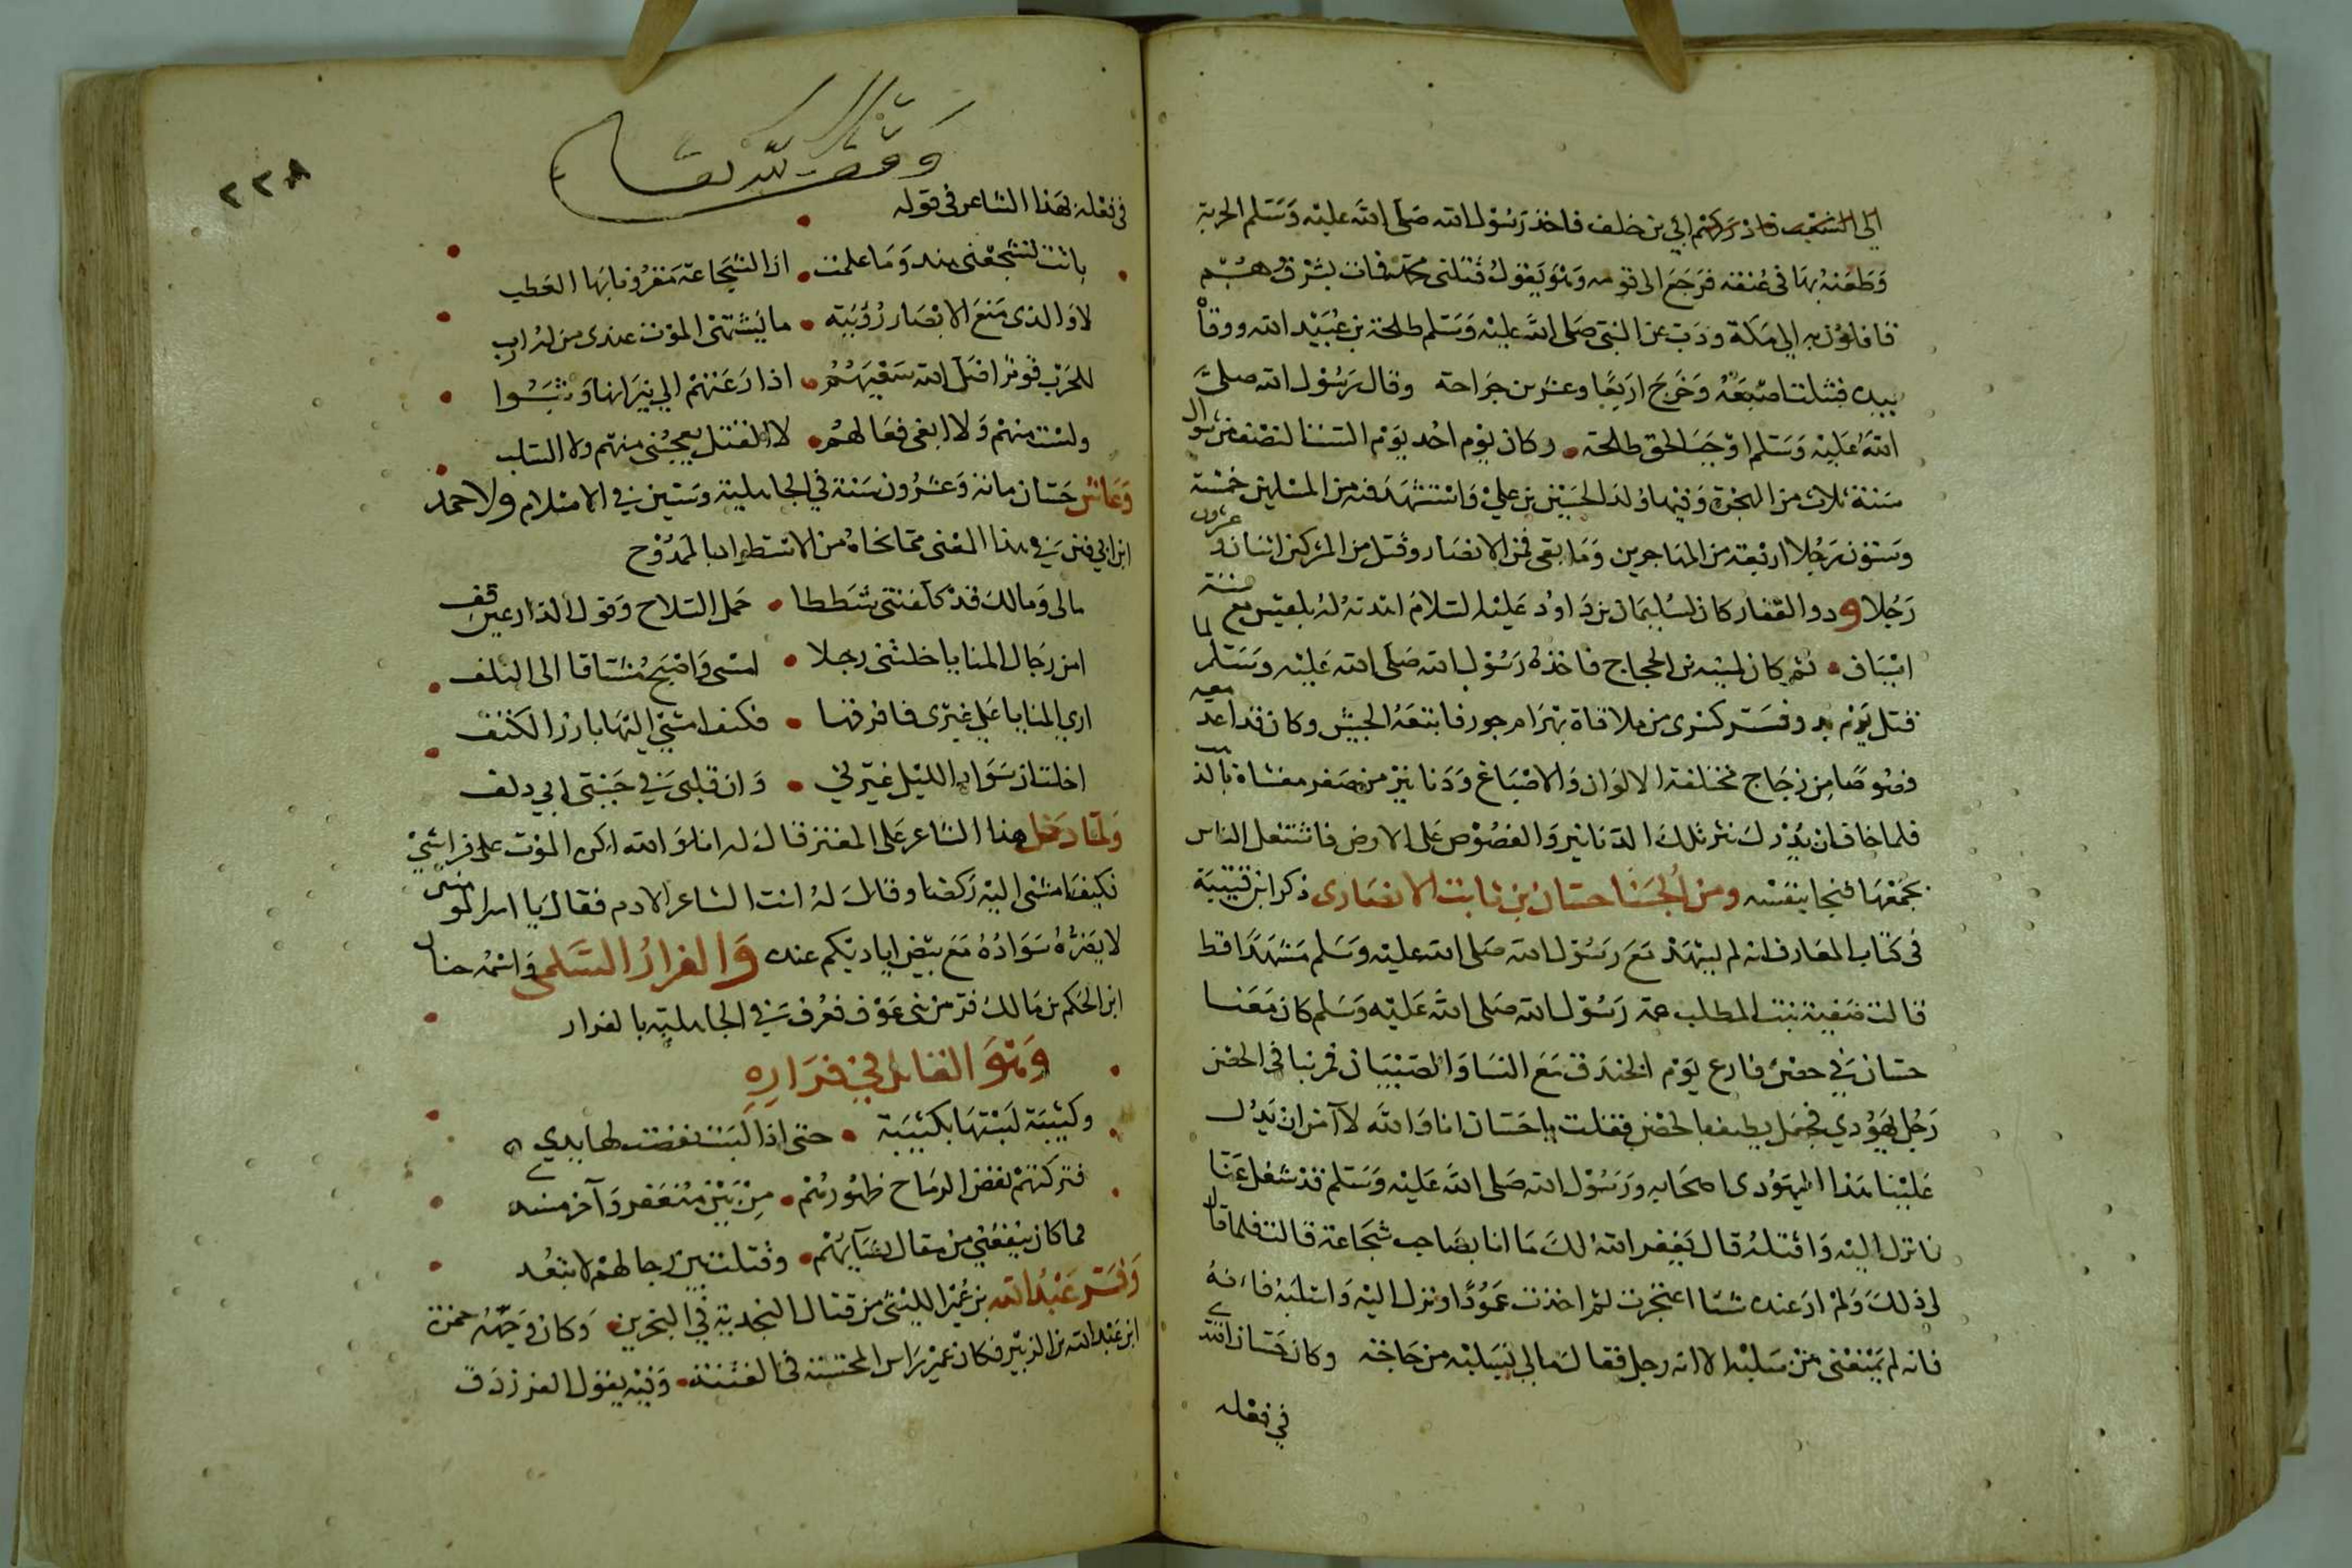 الى الشعب فادركهم ابي بن خلف فاخذ رسول الله صلى الله عليه وسلم الحربة
وطعنه بها في عنقه فرجع الى قومه وهو يقول قتلني محمد فمات بشرف وهم
قافلون به الى مكة وذب عن النبي صلى الله عليه وسلم طلحة بن عبيد الله ووقاه
بيده فشلت اصبعه وخرج اربعا وعشرين جراحة وقال رسول الله صلى
الله عليه وسلم اوجب الحق طلحة وكان يوم احد يوم السبت لنصف من شوال
سنة ثلاث من الهجرة وفيها ولد الحسين بن علي واستشهد فيه من المسلمين خمسة
وستون رجلا اربعة من المهاجرين وما بقي فمن الانصار وقتل من المشركين اثنان وعشرون
رجلا وذو الفقار كان لسليمان بن داود عليه السلام اهدته له بلقيس مع ستة
اسياف ثم كان لمنبه بن الحجاج فاخذه رسول الله صلى الله عليه وسلم لما
قتل يوم بدر وفر كسرى من ملاقاة بهرام جور فاتبعه الجيش وكان قد اعد معه
فصوصا من زجاج مختلفة الالوان والاصباغ ودنانير من صفر مغشاة بالذهب
فلما خاف ان يدرك نثر تلك الدنانير والفصوص على الارض فاشتغل الناس
بجمعها فنجا بنفسه ومن الجبنا حسان بن ثابت الانصارى ذكر ابن قتيبة
في كتاب المعارف انه لم يشهد مع رسول الله صلى الله عليه وسلم مشهدا قط
قالت صفية بنت المطلب عمة رسول الله صلى الله عليه وسلم كان معنا
حسان في حصن فارع يوم الخندق مع النسا والصبيان فمر بنا في الحصن
رجل يهودي فجعل يطيف بالحصن فقلت يا حسان انا والله لا آمن ان يدل
علينا هذا اليهودى اصحابه ورسول الله صلى الله عليه وسلم قد شغل عنا
فانزل اليه واقتله قال يغفر الله لك ما انا بصاحب شجاعة قالت فلما قال
لي ذلك ولم ار عنده شيا اعتجرت ثم اخذت عمودا ونزل اليه واسلبه فانه
فانه لم يمنعني من سلبه الا انه رجل فقال مالي بسلبه من حاجة وكان حسان اقتدى
في فعله
وقف لله تعالى
٢٢٨
في فعله بهذا الشاعر في قوله
باتت تشجعني هند وما علمت ان الشجاعة مقرون بها العطب
لا والذى منع الابصار رؤيته ما يشتهي الموت عندى من له ارب
للحرب قوم اضل الله سعيهم اذا دعتهم الى نيرانها وثبوا
ولست منهم ولا ابغي فعالهم لا القتل يعجبني منهم ولا السلب
وعاش حسان مائة وعشرون سنة في الجاهلية وستين في الاسلام ولاحمد
ابن ابي فنن في هذا المعنى مما نحاه من الاستطراد بالممدوح
مالى ومالك قد كلفتني شططا حمل السلاح وقول الدارعين قف
امن رجال المنايا خلتني رجلا امسى واصبح مشتاقا الى التلف
ارى المنايا على غيرى فافرقها فكيف امشي اليها بارز الكتف
اخلت ان سواد الليل غيرني وان قلبي في جنبي ابي دلف
ولما دخل هذا الشاعر على المعتز قال له انا والله اكره الموت على فراشي
فكيف امشى اليه ركضا وقال له انت الشاعر الادم فقال يا امير المومنين
لا يضره سواده مع بيض اياديكم عنده والفرار السلمى واسمه حنان
ابن الحكم بن مالك فر من بنى عوف فعرف في الجاهلية بالفرار
وهو القائل في فراره
وكتيبة لبستها بكتيبة حتى اذا لبست نفضت لها يدي
فتركتهم تقض الرماح ظهورهم من بين منعفر وآخر مسند
ما كان ينفعني من مقال نسائهم وقتلت بين رجالهم لا تبعد
وفر عبد الله بن عمير الليثي من قتال النجدية في البحرين وكان وجهه حمزة
ابن عبد الله بن الزبير فكان عمير راس المحتسبة في الفتنة وفيه يقول الفرزدق